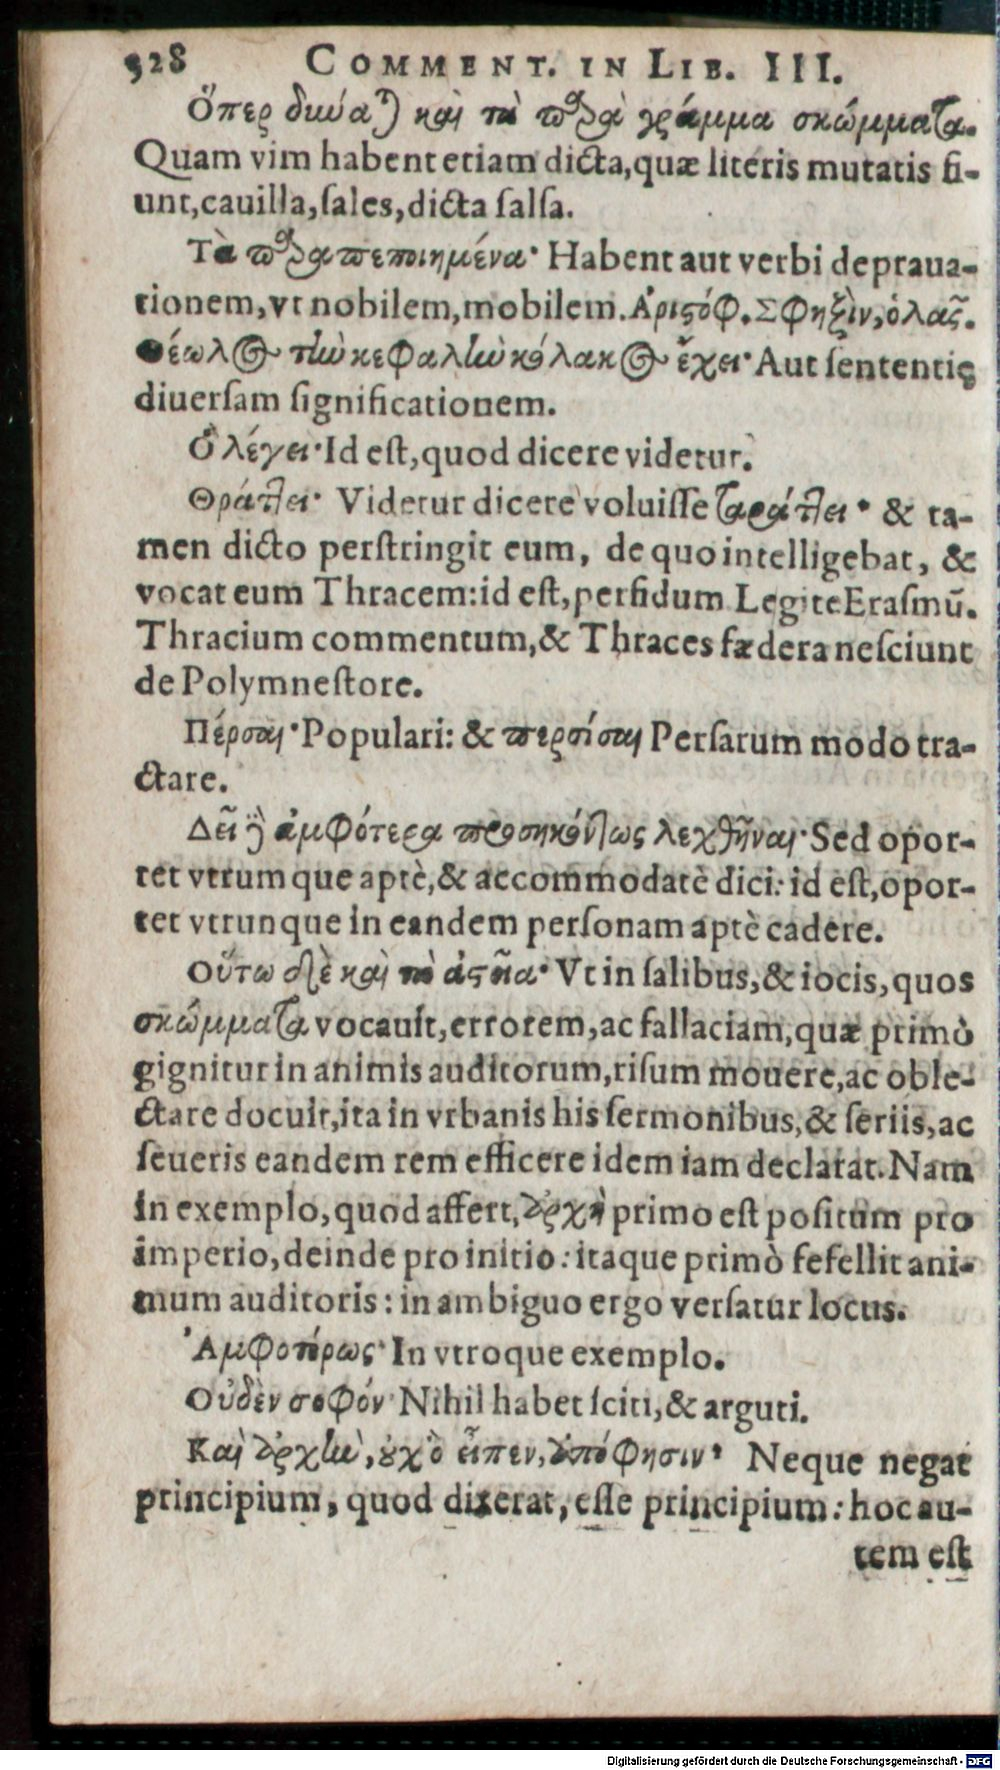 328 COMMENT. IN LIB. III.
Ὅπερ δύναται καὶ τὰ παρὰ γράμμα σκώμματα.
Quam vim habent etiam dicta, quæ literis mutatis fi-
unt, cauilla, sales, dicta salsa.
Τὰ παραπεποιημένα· Habent aut verbi depraua-
tionem, vt nobilem, mobilem. Ἀριστόφ. Σφηξὶν, ὁλᾷς.
Θέωλος τὴν κεφαλὴν κόλακος ἔχει· Aut sententię
diuersam significationem.
Ὃ λέγει· Id est, quod dicere videtur.
Θράττει· Videtur dicere voluisse ταράττει· & ta-
men dicto perstringit eum, de quo intelligebat, &
vocat eum Thracem: id est, perfidum. Legite Erasmū.
Thracium commentum, & Thraces fædera nesciunt
de Polymnestore.
Πέρσαι· Populari: & περσίσαι Persarum modo tra-
ctare.
Δεῖ δὲ ἀμφότερα προσηκόντως λεχθῆναι· Sed opor-
tet vtrumque aptè, & accommodatè dici: id est, opor-
tet vtrunque in eandem personam aptè cadere.
Οὕτω δὲ καὶ τὰ ἀστεῖα· Vt in salibus, & iocis, quos
σκώμματα vocauit, errorem, ac fallaciam, quæ primò
gignitur in animis auditorum, risum mouere, ac oble-
ctare docuit, ita in vrbanis his sermonibus, & seriis, ac
seueris eandem rem efficere idem iam declarat. Nam
in exemplo, quod affert, ἀρχὴ primo est positum pro
imperio, deinde pro initio: itaque primò fefellit ani-
mum auditoris: in ambiguo ergo versatur locus.
Ἀμφοτέρως· In vtroque exemplo.
Οὐδὲν σοφόν· Nihil habet sciti, & arguti.
Καὶ ἀρχὴν, οὐχ ὃ εἶπεν, ἀπόφησιν· Neque negat
principium, quod dixerat, esse principium: hoc au-
tem est
Digitalisierung gefördert durch die Deutsche Forschungsgemeinschaft - DFG